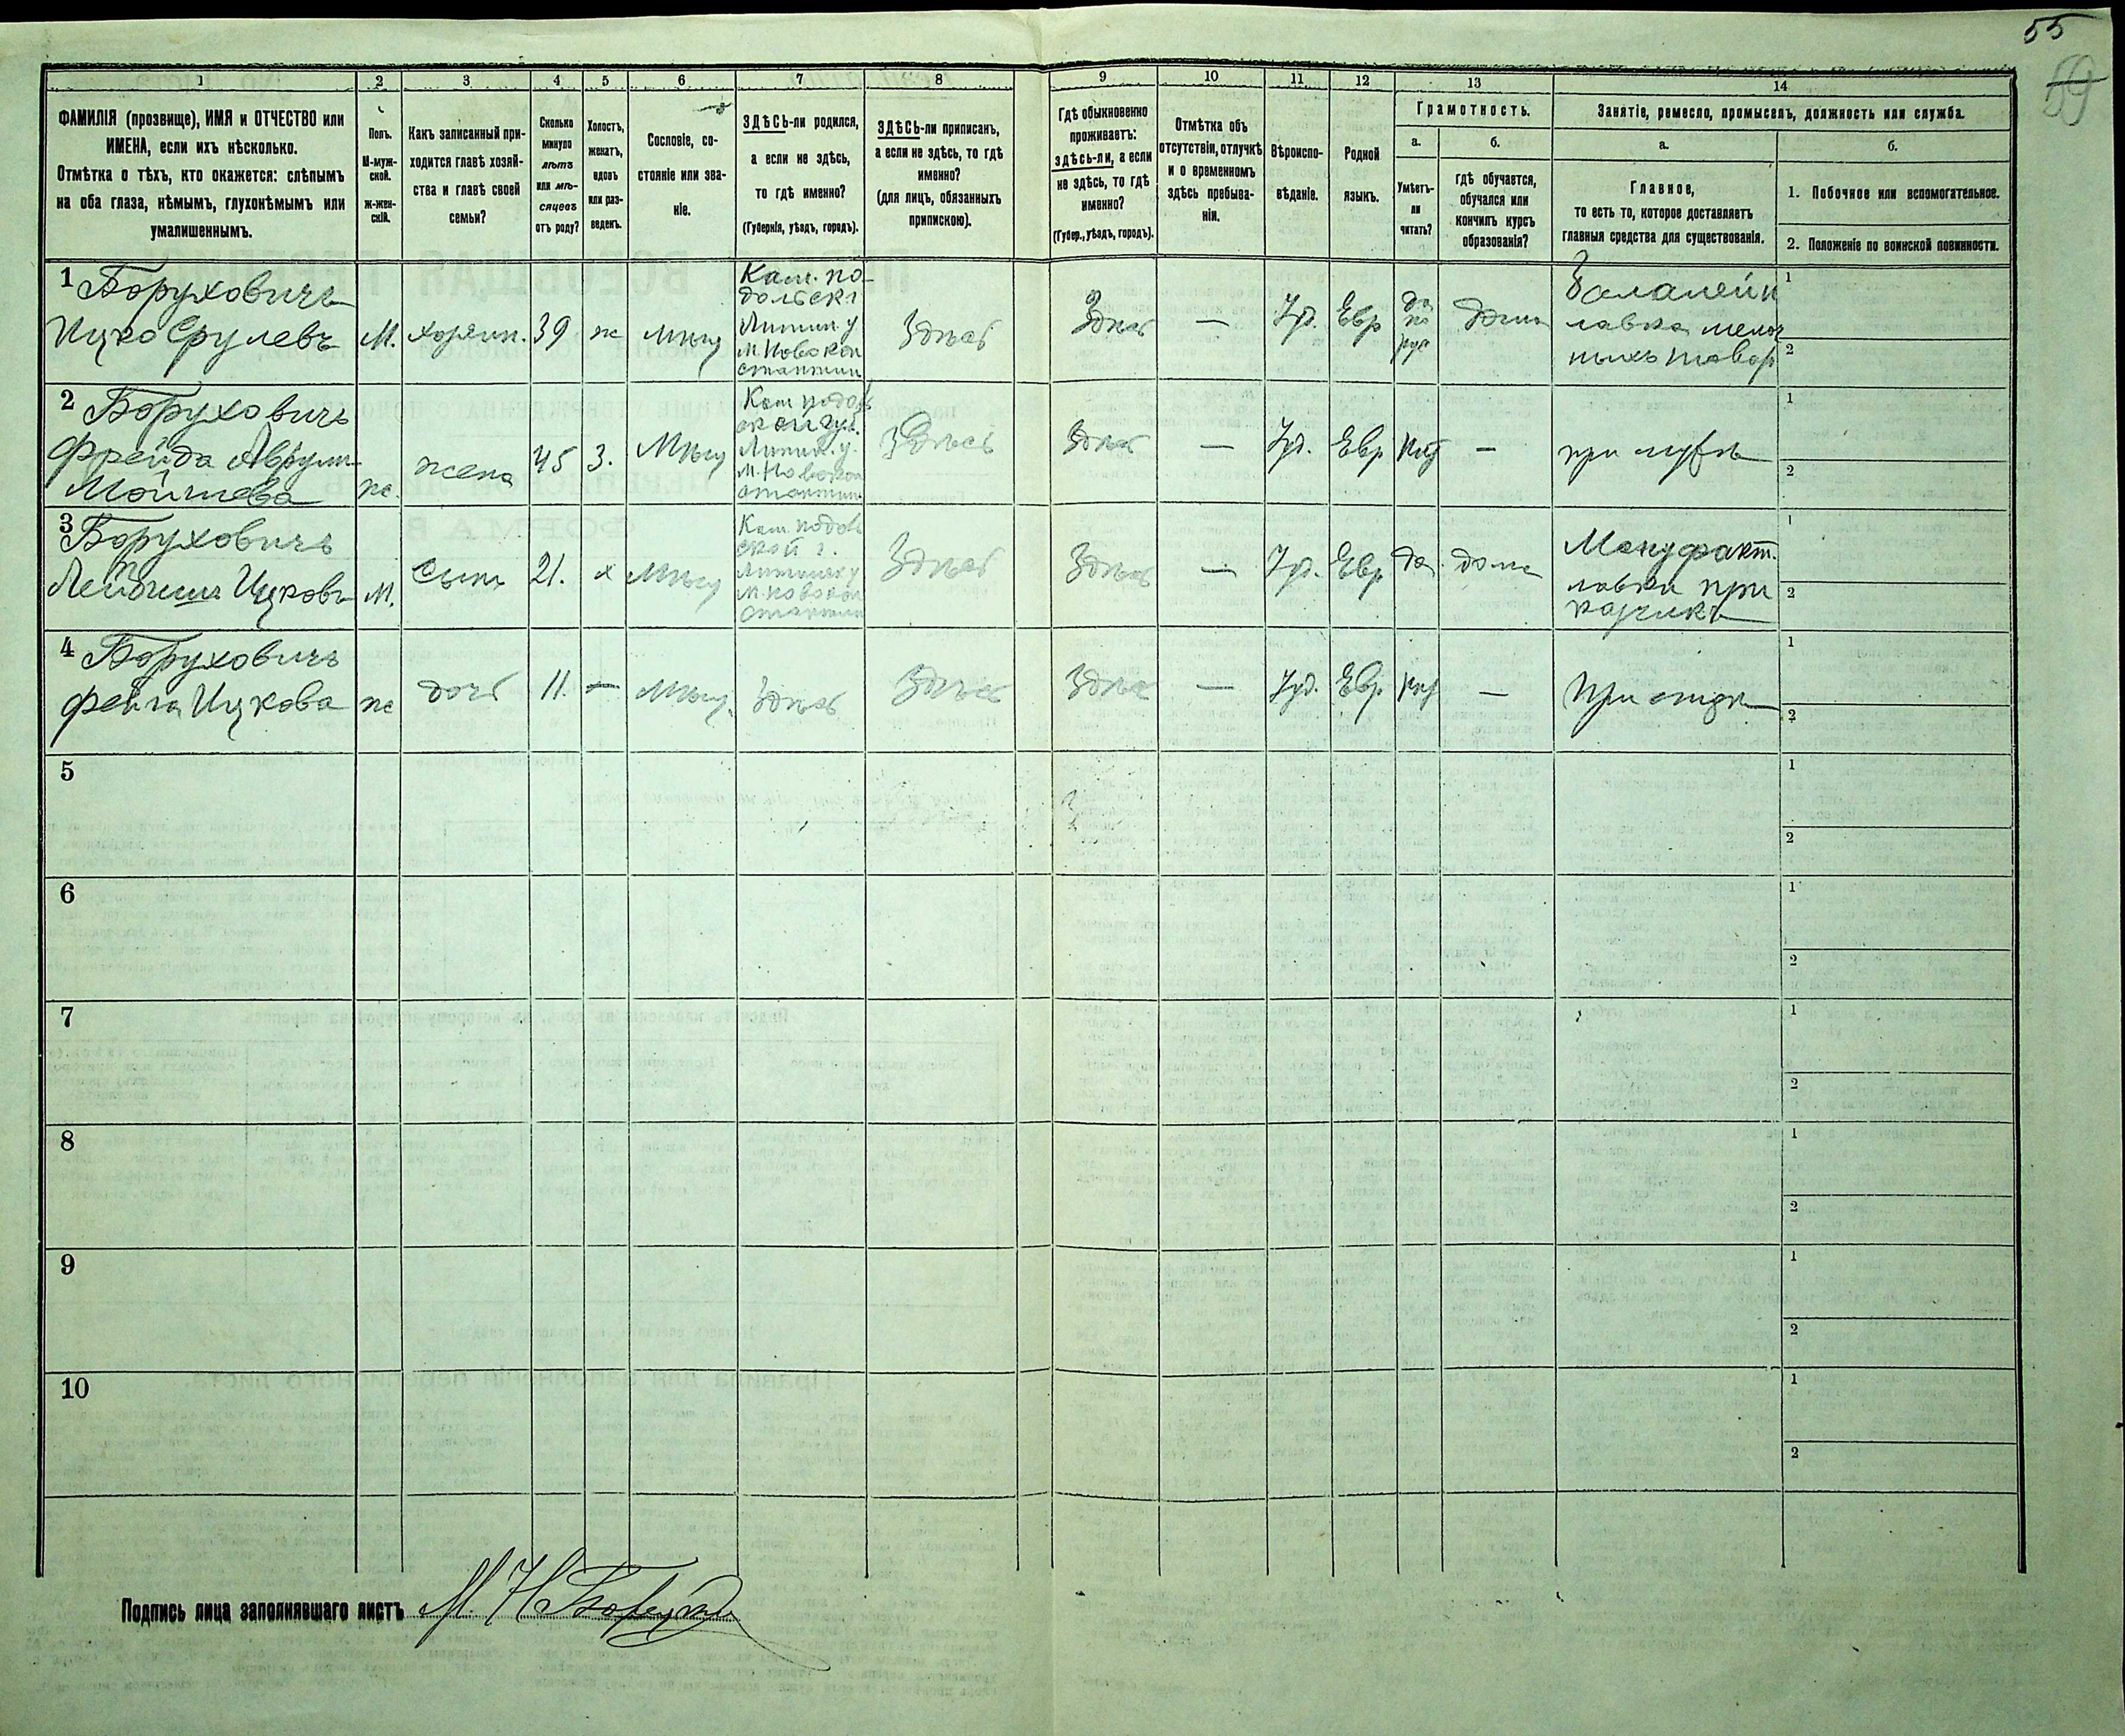 55
59
1
2
3
4
5
6
7
8
9
10
11
12
13
14
ФАМИЛІЯ (прозвище), ИМЯ и ОТЧЕСТВО или
ИМЕНА, если ихъ нѣсколько.
Отмѣтка о тѣхъ, кто окажется: слѣпымъ
на оба глаза, нѣмымъ, глухонѣмымъ или
умалишеннымъ.
Полъ.
М-муж-
ской.
ж-жен-
скій.
Какъ записанный при-
ходится главѣ хозяй-
ства и главѣ своей
семьи?
Сколько
минуло
лѣтъ
или мѣ-
сяцевъ
отъ роду?
Холостъ,
женатъ,
вдовъ
или раз-
веденъ.
Сословіе, со-
стояніе или зва-
ніе.
ЗДѢСЬ-ли родился,
а если не здѣсь,
то гдѣ именно?
(Губернія, уѣздъ, городъ).
ЗДѢСЬ-ли приписанъ,
а если не здѣсь, то гдѣ
именно?
(для лицъ, обязанныхъ
припискою).
Гдѣ обыкновенно
проживаетъ:
здѣсь-ли, а если
не здѣсь, то гдѣ
именно?
(Губер., уѣздъ, городъ).
Отмѣтка объ
отсутствіи, отлучкѣ
и о временномъ
здѣсь пребыва-
ніи.
Вѣроиспо-
вѣданіе.
Родной
языкъ.
Грамотность.
а.
Умѣетъ-
ли
читать?
б.
гдѣ обучается,
обучался или
кончилъ курсъ
образованія?
Занятіе, ремесло, промыселъ, должность или служба.
а.
Главное,
то есть то, которое доставляетъ
главныя средства для существованія.
б.
1. Побочное или вспомогательное.
2. Положеніе по воинской повинности.
1 Боруховичъ
Ицко Срулевъ
М.
хозяин.
39
ж
Мѣщ
Кам. по-
дольск г
Литин у
М. Новокон
стантин
Здѣсь
Здѣсь
—
Іуд.
Евр
да
по
рус
дома
Бакалейн
лавка мелоч
ныхъ товар
1
2
2 Боруховичъ
Фрейда Аврум-
Мойшева
ж.
жена
45
З.
Мѣщ
Кам подол
ской губ.
Литин. у.
М. Новокон
стантин
Здѣсь
Здѣсь
—
Іуд.
Евр
нѣт
—
при мужѣ
1
2
3
Боруховичъ
Лейбишъ Ицковъ
М.
сынъ
21.
х
Мѣщ
Кам. подол
ской г.
Литинск у
М. Новокон
стантин
Здѣсь
Здѣсь
—
Іуд.
Евр
да.
дома
Мануфакт.
лавки при
казчикъ
1
2
4 Боруховичъ
Фейга Ицкова
ж
дочь
11.
—
Мѣщ.
Здѣсь
Здѣсь
Здѣсь
—
Іуд.
Евр
нѣт
—
При отцѣ
1
2
5
1
2
6
1
2
7
1
2
8
1
2
9
1
2
10
1
2
Подпись лица заполнявшаго листъ